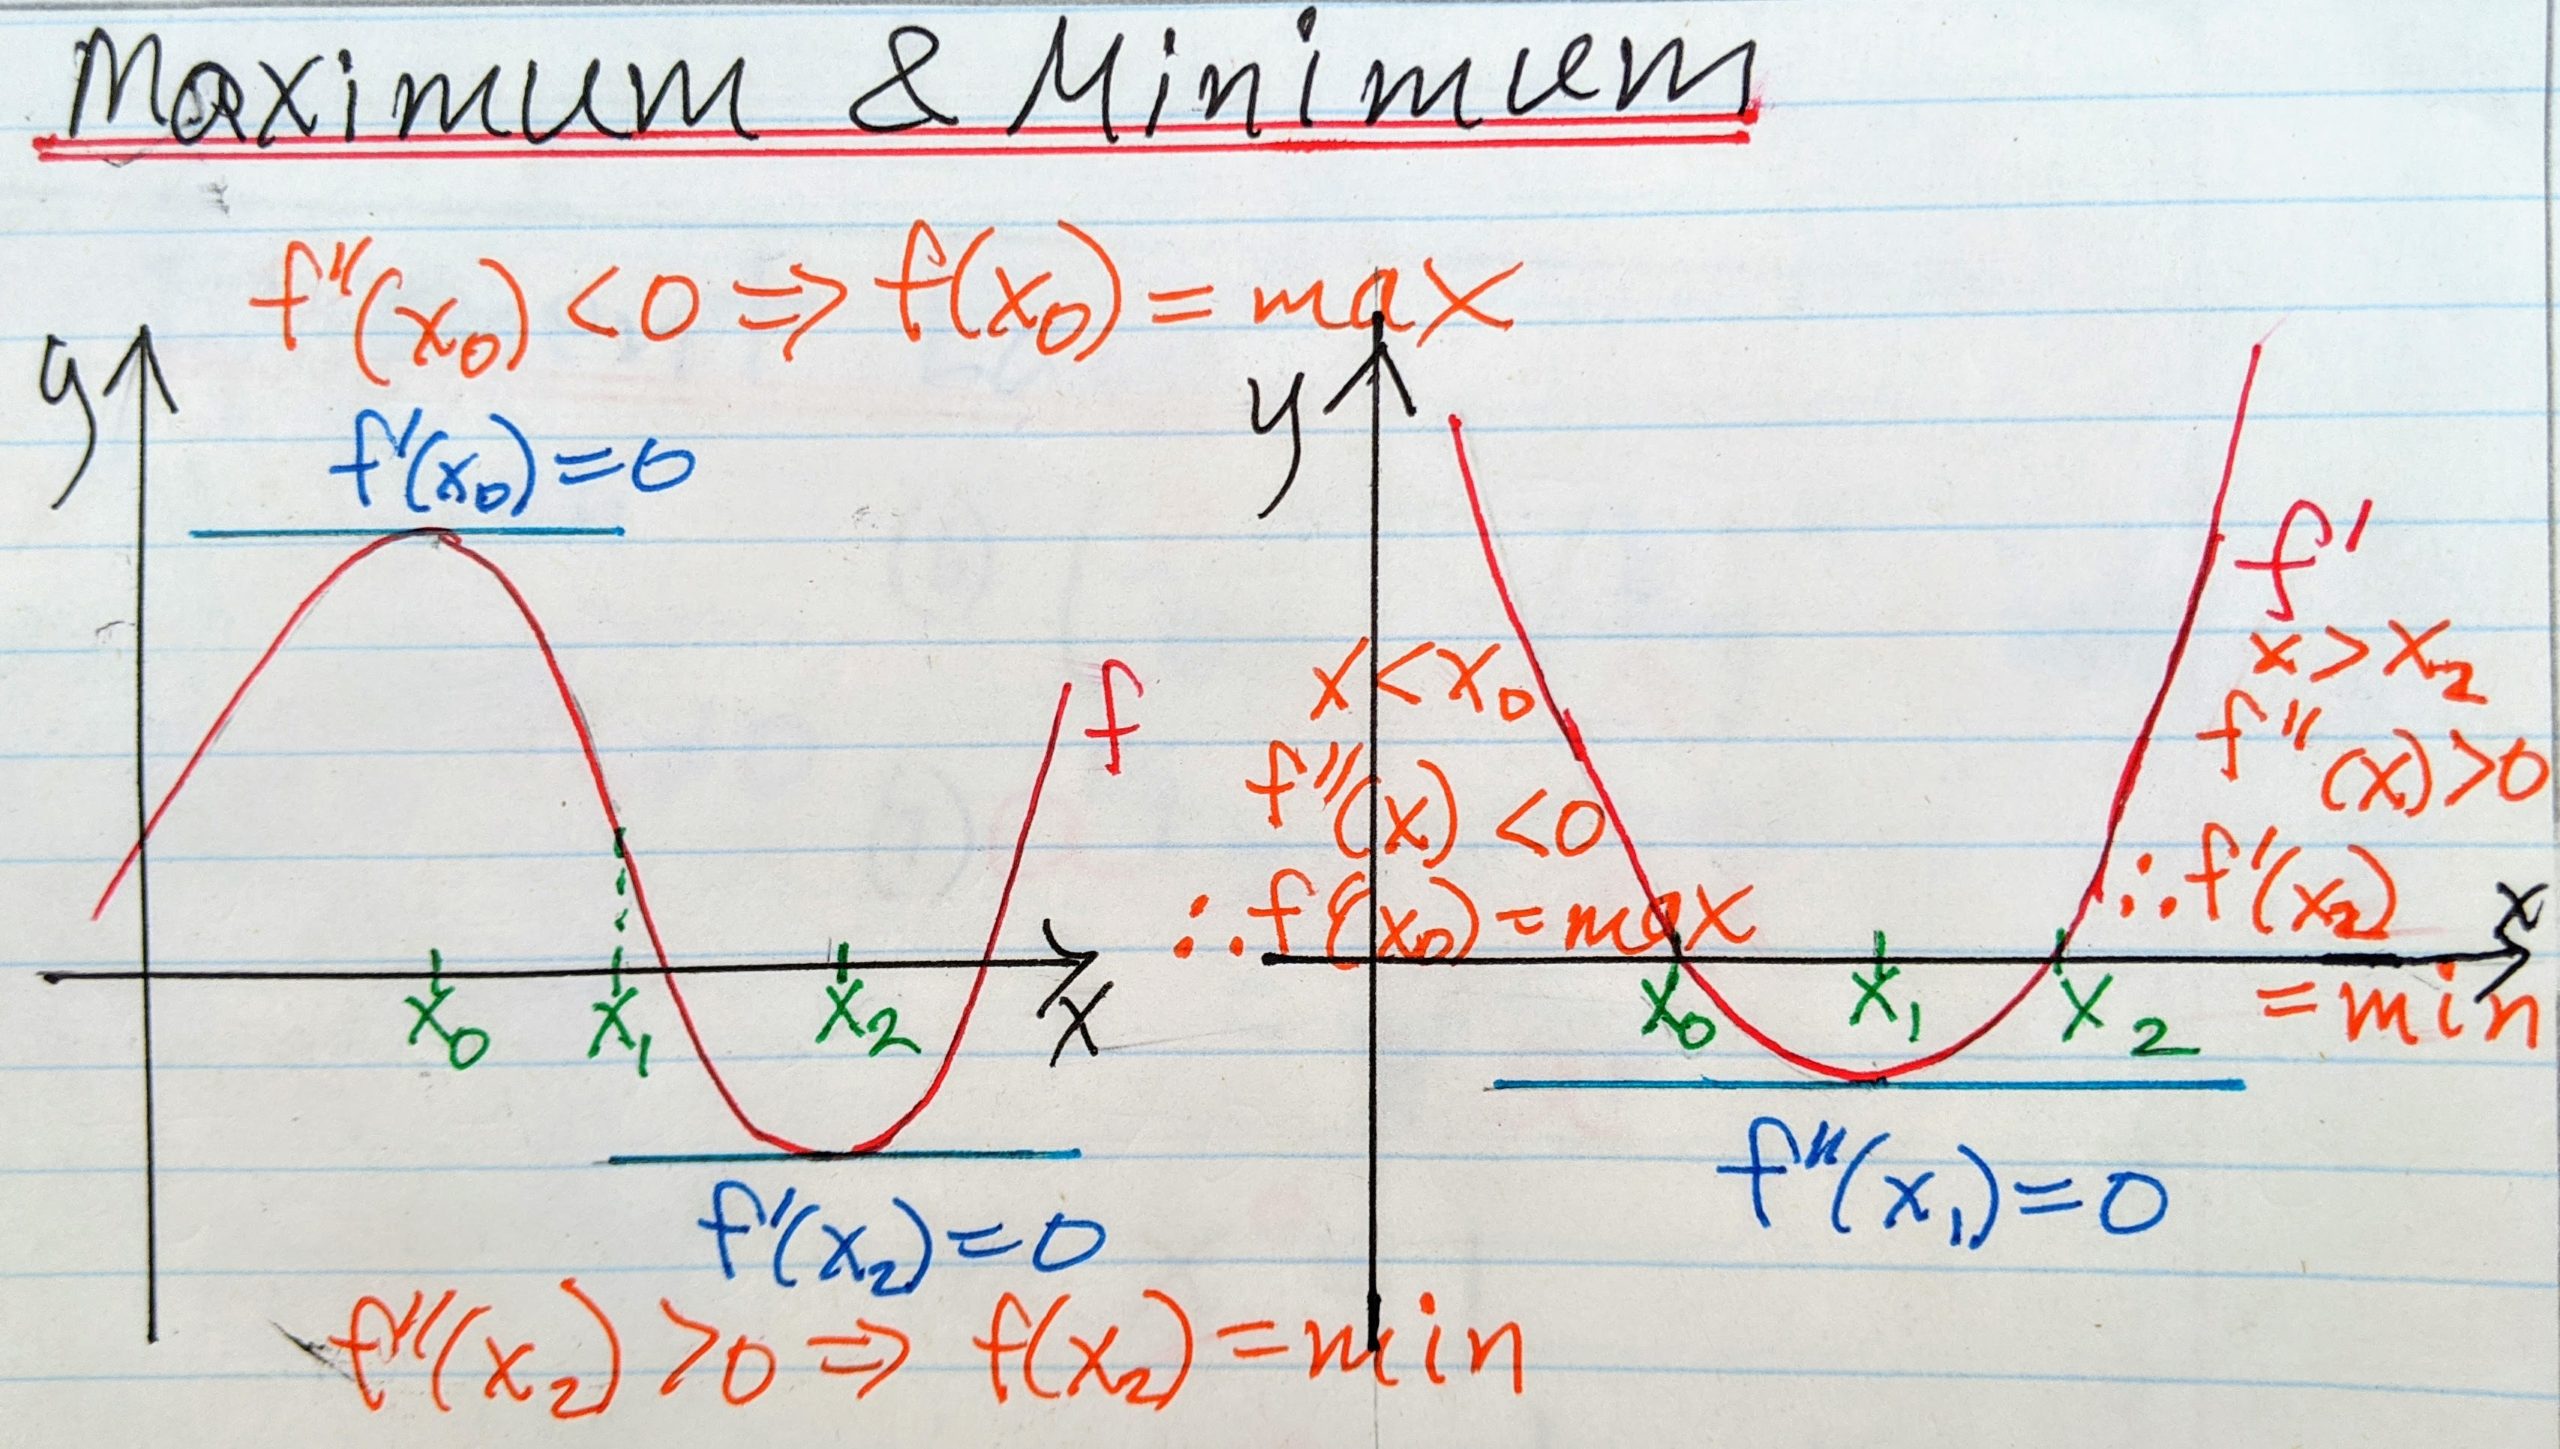 Maximum & Minimum
f''(x₀) < 0 ⇒ f(x₀) = max
y
f'(x₀) = 0
f
x₀ x₁ x₂ x
f'(x₂) = 0
f''(x₂) > 0 ⇒ f(x₂) = min
y
f'
x < x₀
f''(x) < 0
∴ f'(x₀) = max
x > x₂
f''(x) > 0
∴ f'(x₂)
= min
x
x₀ x₁ x₂
f''(x₁) = 0